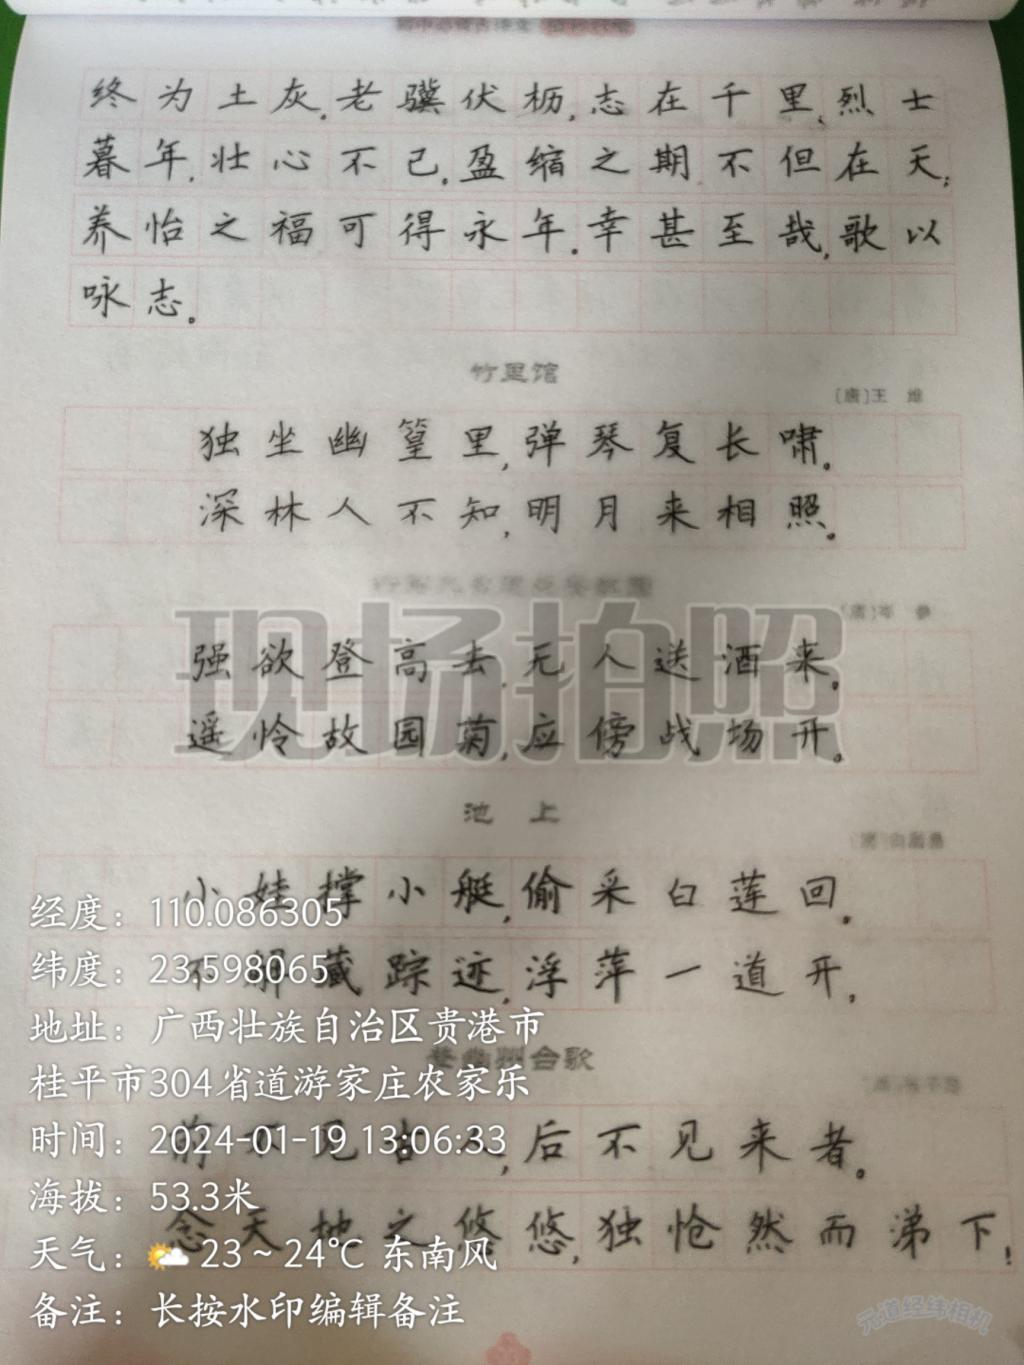 终为土灰。老骥伏枥,志在千里,烈士
暮年,壮心不已。盈缩之期,不但在天;
养怡之福,可得永年。幸甚至哉,歌以
咏志。
竹里馆
〔唐〕王 维
独坐幽篁里,弹琴复长啸。
深林人不知,明月来相照。
〔唐〕岑 参
强欲登高去,无人送酒来。
遥怜故园菊,应傍战场开。
现场拍照
池 上
小娃撑小艇,偷采白莲回。
不解藏踪迹,浮萍一道开。
登幽州台歌
前不见古人,后不见来者。
念天地之悠悠,独怆然而涕下!
经度:110.086305
纬度:23.598065
地址:广西壮族自治区贵港市
桂平市304省道游家庄农家乐
时间:2024-01-19 13:06:33
海拔:53.3米
天气: 23~24℃ 东南风
备注:长按水印编辑备注
元道经纬相机